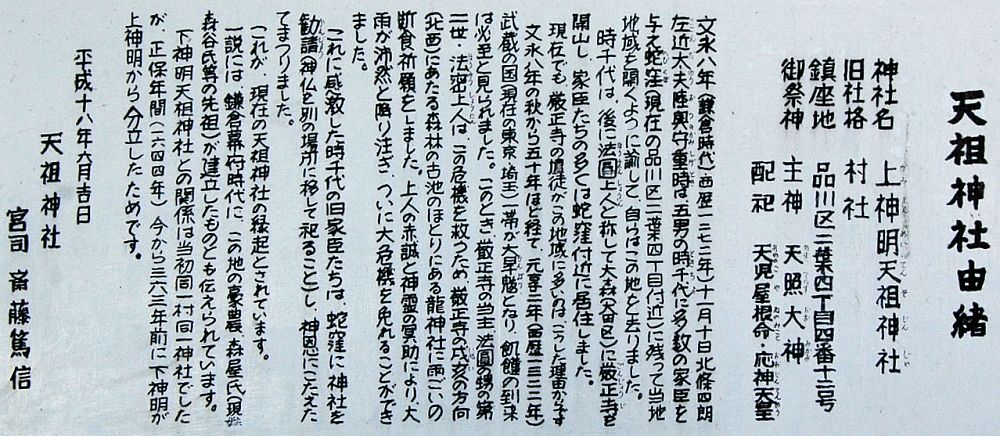 天祖神社由緒
神社名　上神明天祖神社
旧社格　村社
鎮座地　品川区二葉四丁目四番十二号
御祭神　主神　天照大神
配祀　天児屋根命・応神天皇
文永八年(鎌倉時代)西暦一二七二年)十一月十日北條四郎
左近太夫陸奥守重時は五男の時千代に多数の家臣を
与え蛇窪(現在の品川区二葉四丁目付近)に残って当地
地域を開くように諭して、自らはこの地を去りました。
時千代は、後に法圓上人と称して大森(大田区)に厳正寺を
開山し、家臣たちの多くは蛇窪付近に居住しました。
現在でも、厳正寺の檀徒がこの地域に多いのはこうした理由からです
文永八年の秋から五十年ほど経て、元亨二年(西暦一三二二年)
武蔵の国(現在の東京・埼玉)一帯が大旱魃となり、飢饉の到来
は必至と見られました。このとき、厳正寺の当主、法圓の甥の第
二世・法密上人は、この危機を救うため、厳正寺の戌亥の方向
(北西)にあたる森林の古池のほとりにある龍神社に雨ごいの
断食祈願をしました。上人の赤誠と神霊の冥助により、大
雨が沛然と降り注ぎ、ついに大危機を免れることができ
ました。
これに感激した時千代の旧家臣たちは、蛇窪に神社を
勧請(神仏を別の場所に移して祀ること)し、神恩にこたえ
てまつりました。
これが、現在の天祖神社の縁起とされています。
一説には、鎌倉幕府時代に、この地の豪農、森屋氏(現
森谷氏等の先祖)が建立したものとも伝えられています。
下神明天祖神社との関係は当初同一村同一神社でした
が、正保年間(一六四四年)今から三六三年前に下神明が
上神明から分立したためです。
平成十八年六月吉日
天祖神社
宮司　斎藤篤信